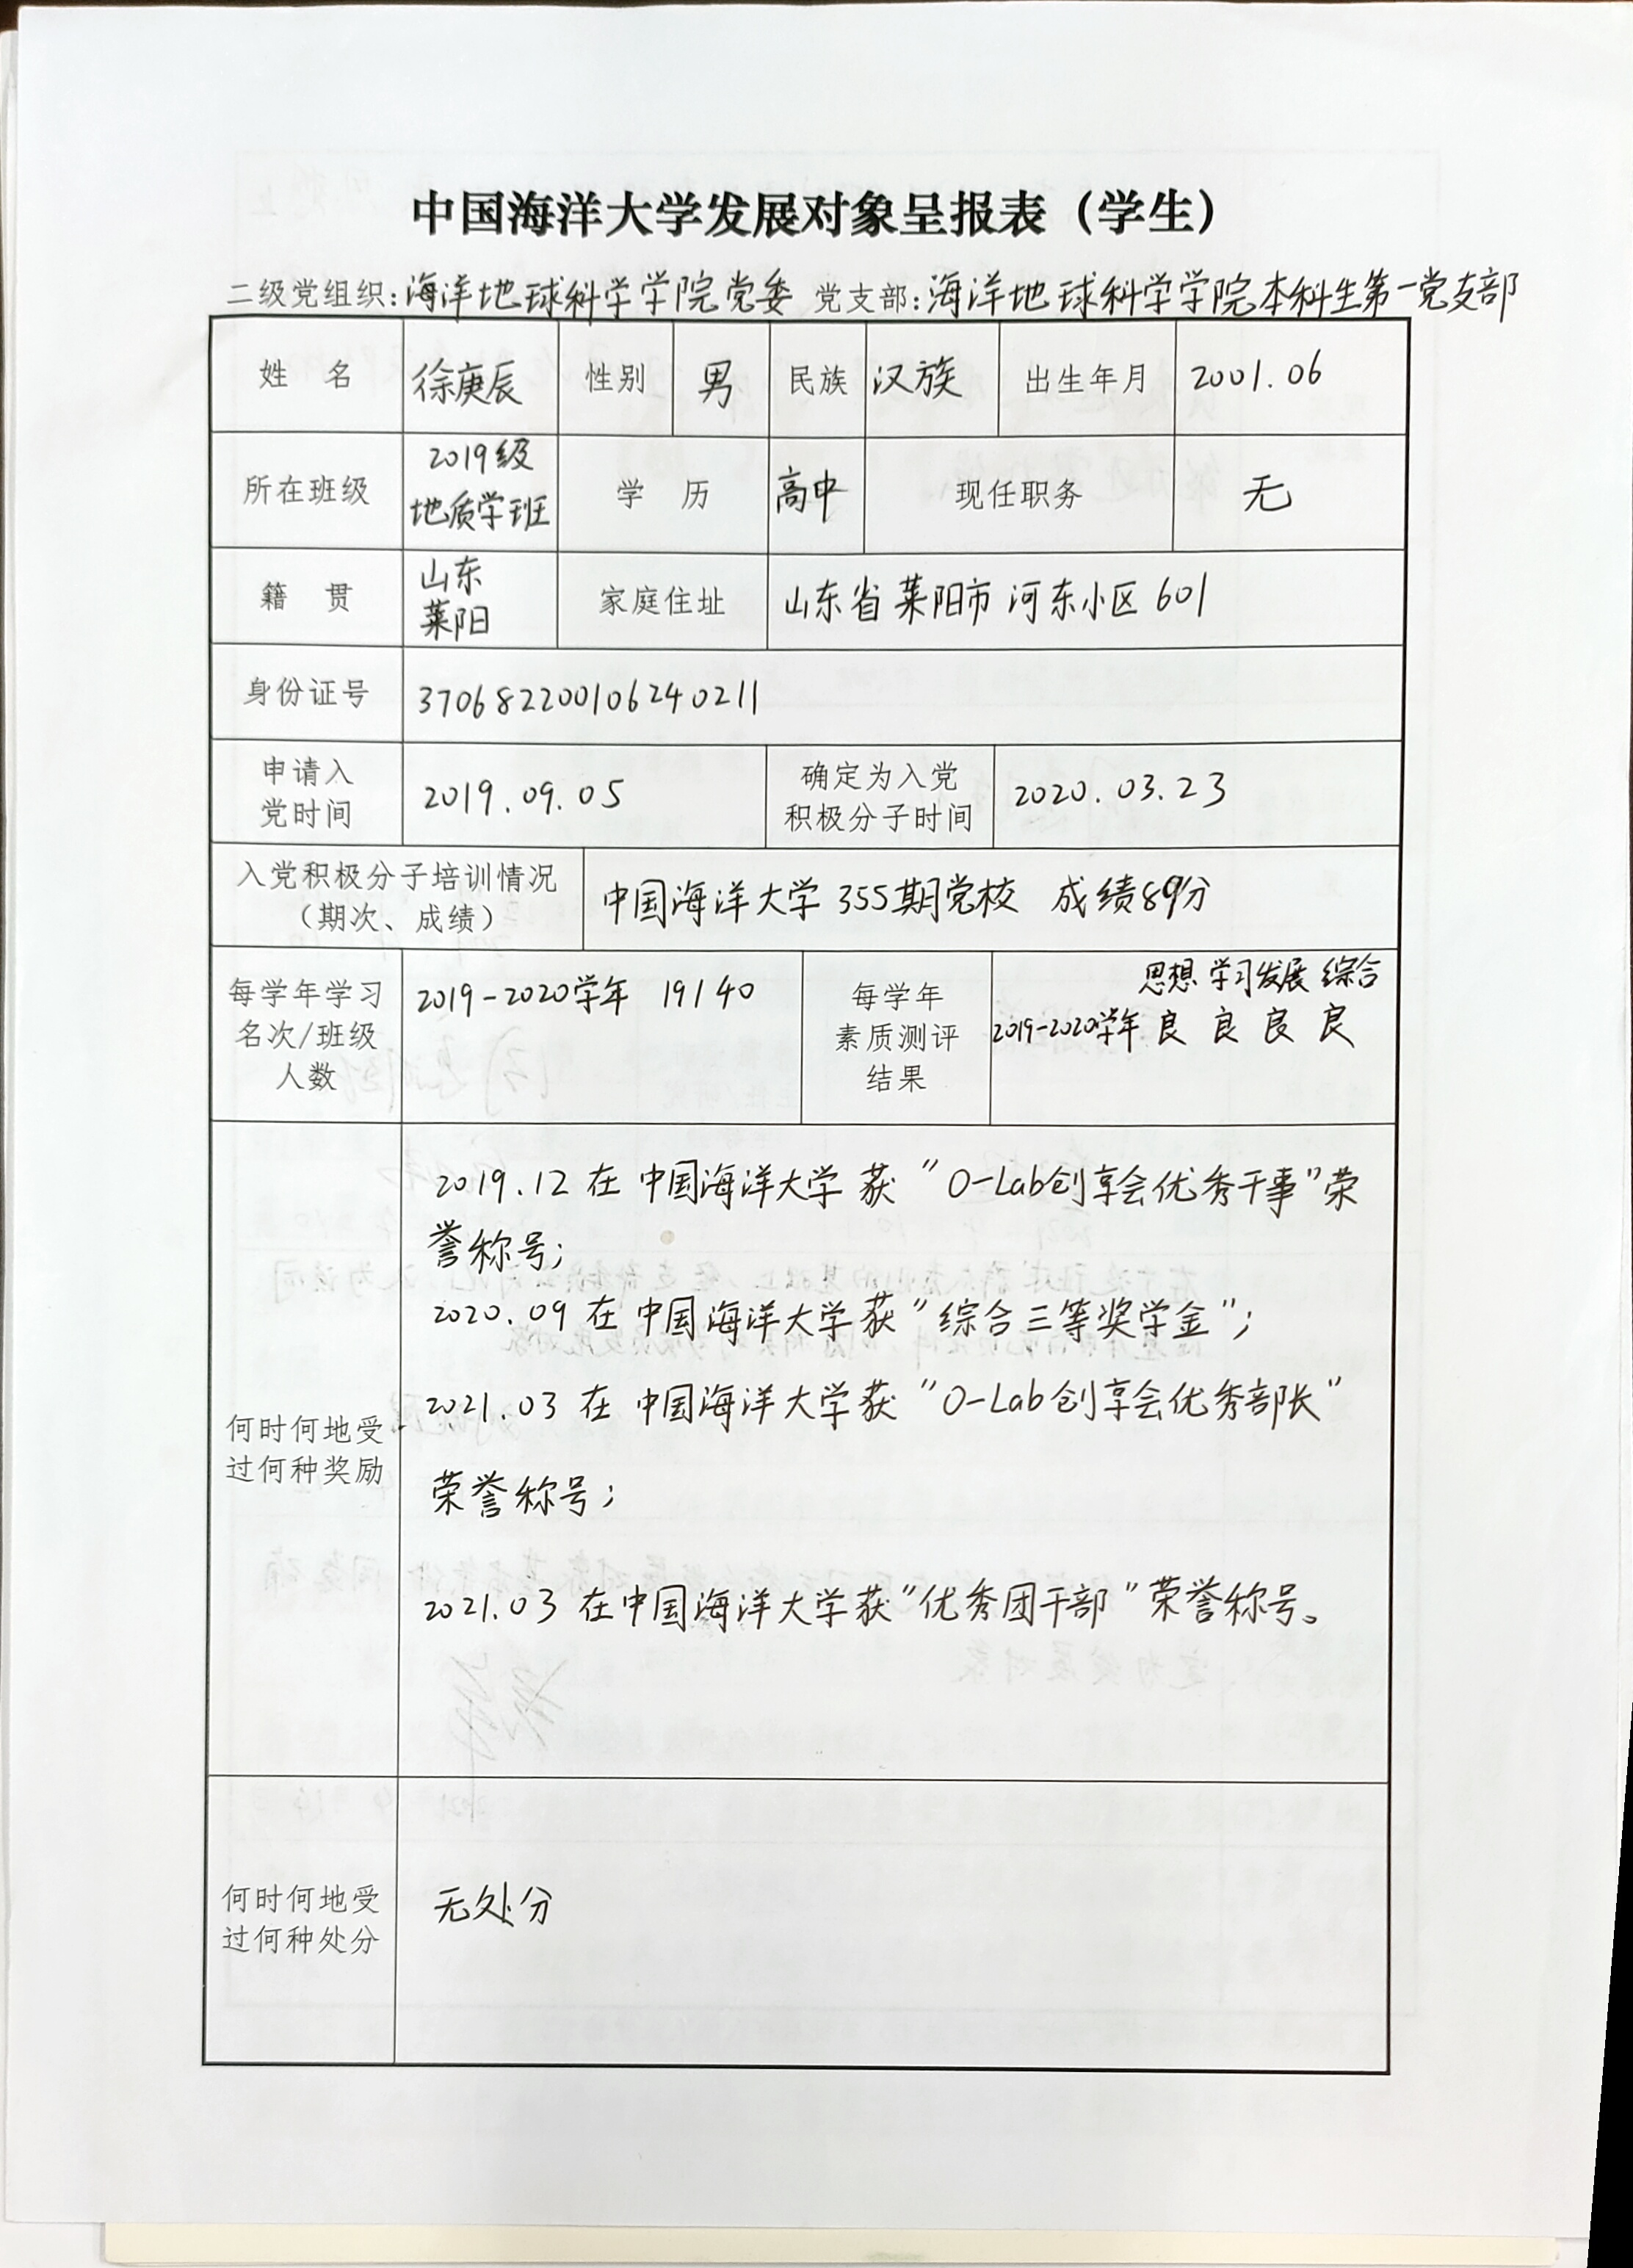 中国海洋大学发展对象呈报表（学生）
二级党组织：海洋地球科学学院党委 党支部：海洋地球科学学院本科生第一党支部
姓 名 徐庚辰 性别 男 民族 汉族 出生年月 2001.06
所在班级 2019级
地质学班 学 历 高中 现任职务 无
籍 贯 山东
莱阳 家庭住址 山东省莱阳市河东小区601
身份证号 370682200106240211
申请入
党时间 2019.09.05 确定为入党
积极分子时间 2020.03.23
入党积极分子培训情况
（期次、成绩） 中国海洋大学355期党校 成绩89分
每学年学习
名次/班级
人数 2019-2020学年 19/40
每学年
素质测评
结果 思想 学习 发展 综合
2019-2020学年 良 良 良 良
何时何地受
过何种奖励
2019.12 在中国海洋大学获“O-Lab创享会优秀干事”荣
誉称号；
2020.09 在中国海洋大学获“综合三等奖学金”；
2021.03 在中国海洋大学获“O-Lab创享会优秀部长”
荣誉称号；
2021.03 在中国海洋大学获“优秀团干部”荣誉称号。
何时何地受
过何种处分 无处分